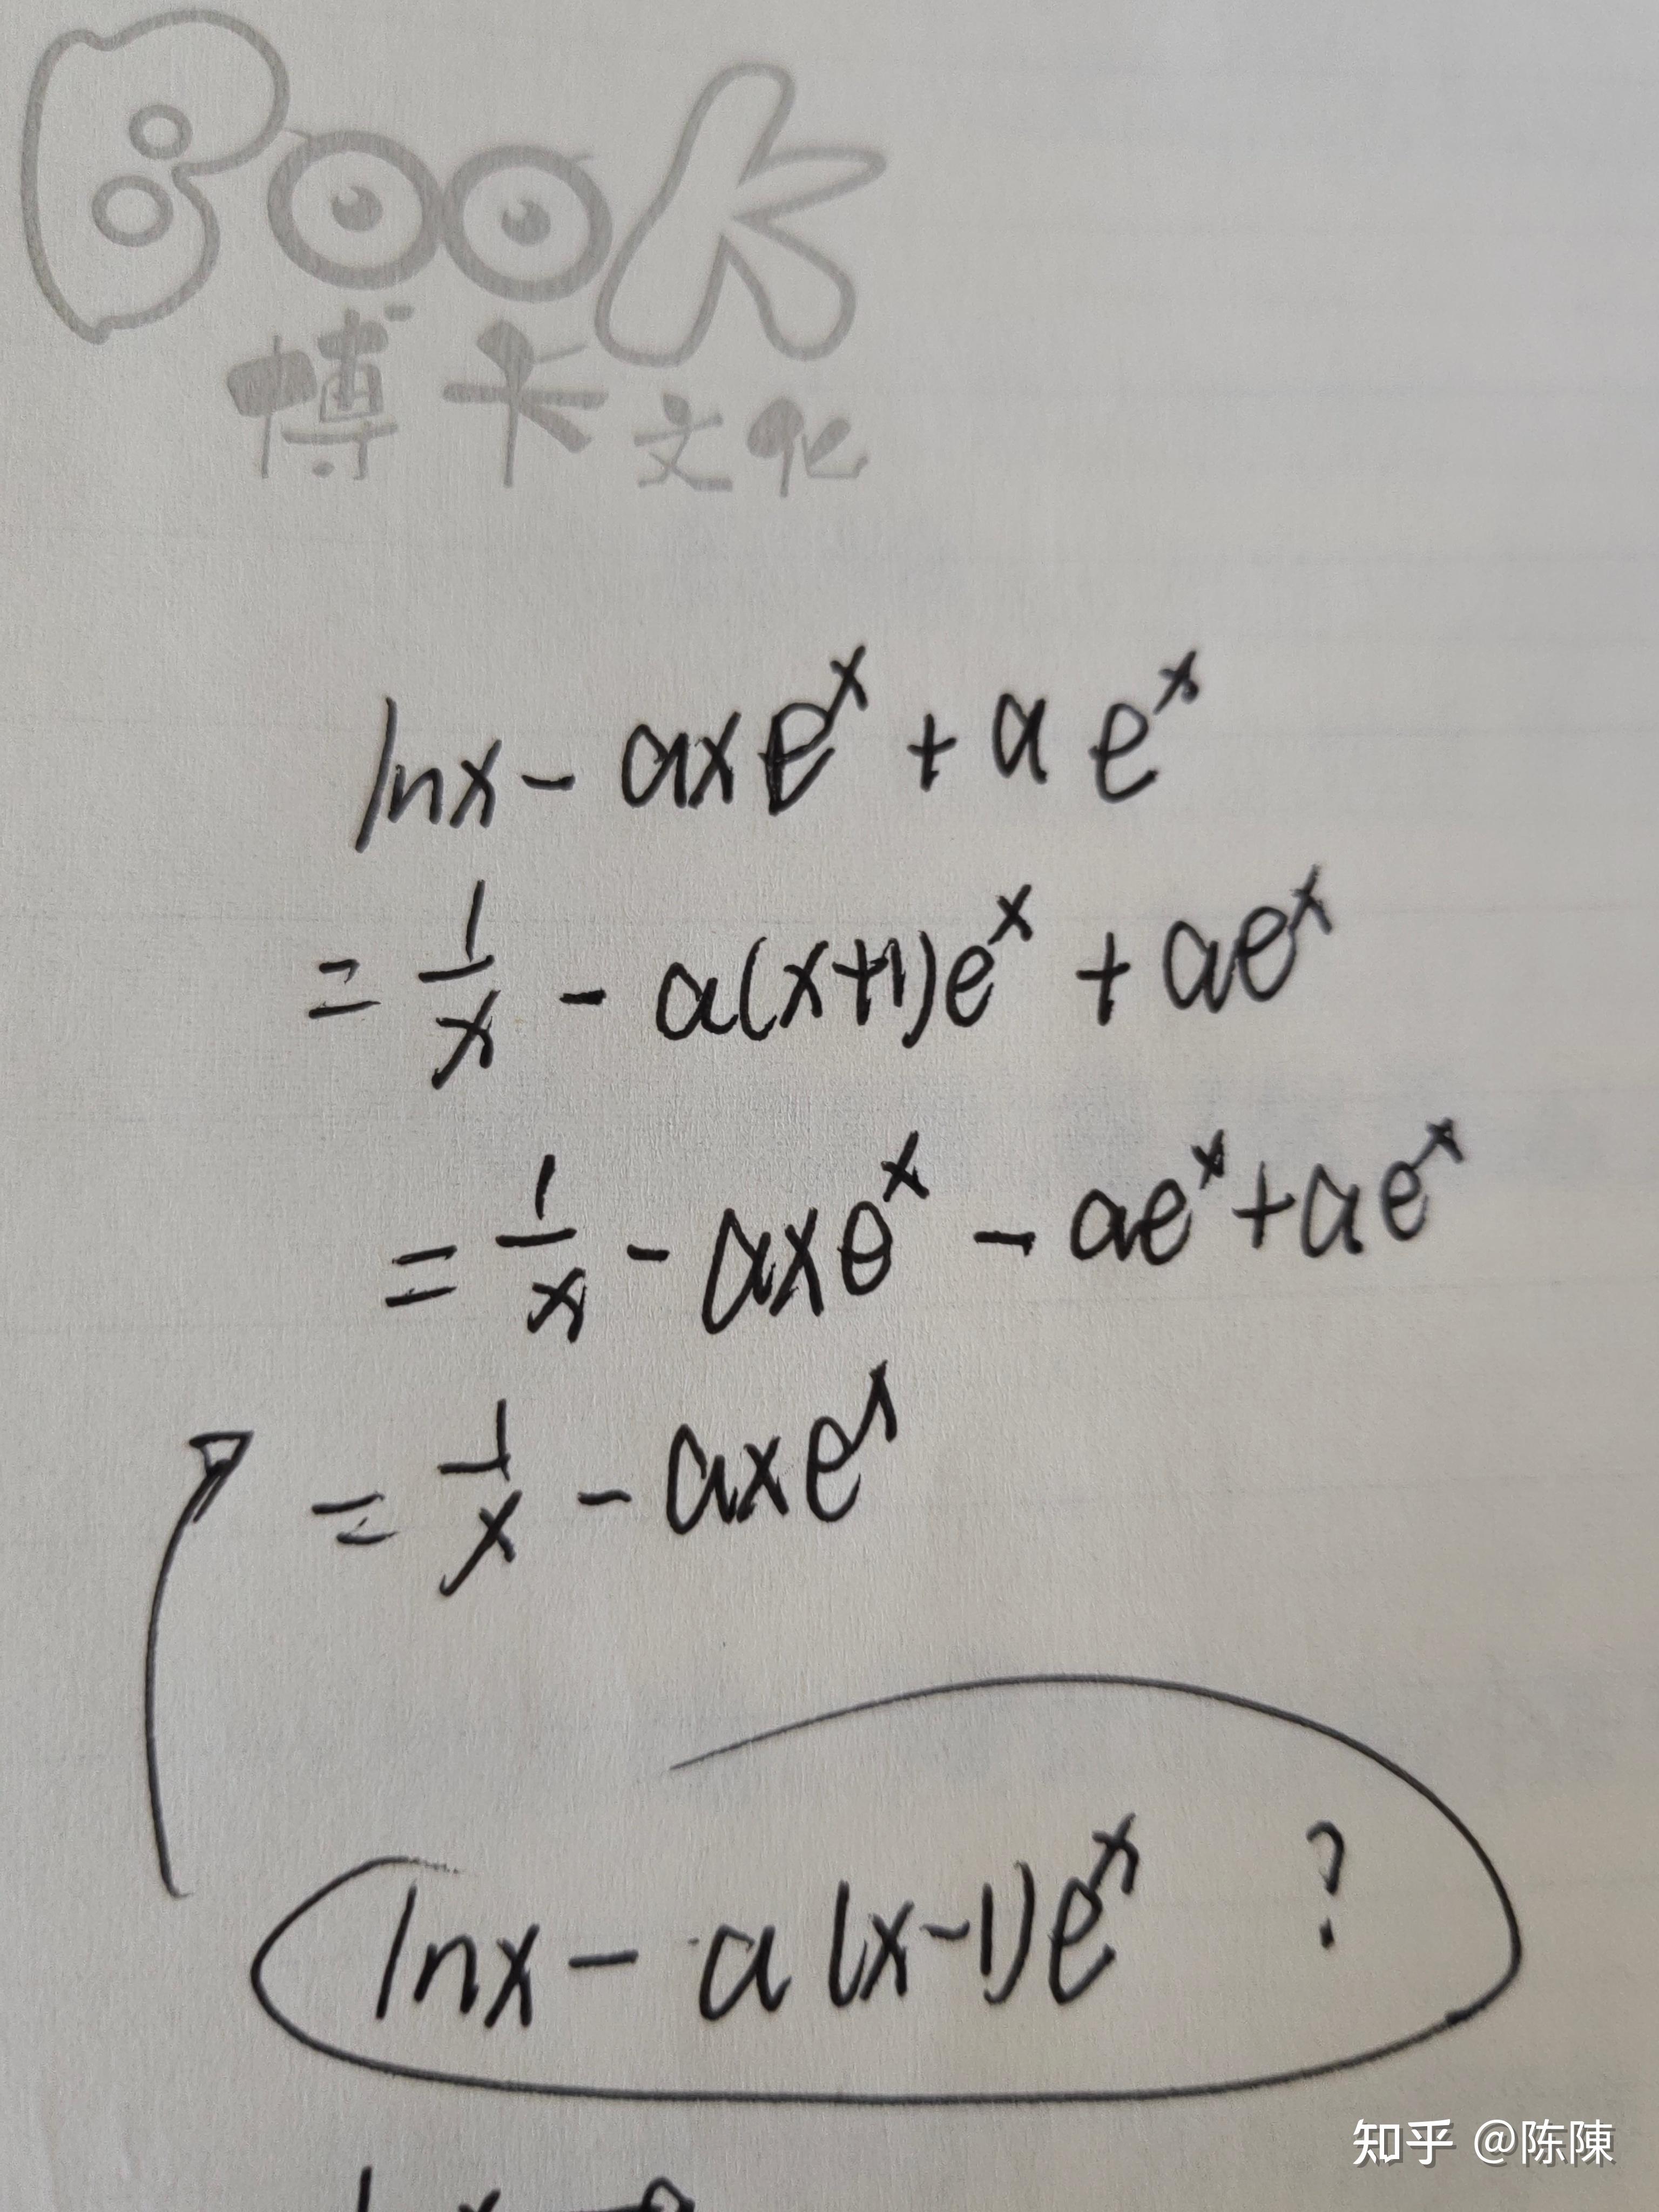 BOOK
博卡文化
lnx - axe^x + a e^x
= 1/x - a(x+1)e^x + ae^x
= 1/x - axe^x - ae^x + ae^x
= 1/x - axe^x
lnx - a(x-1)e^x ?
知乎 @陈陳